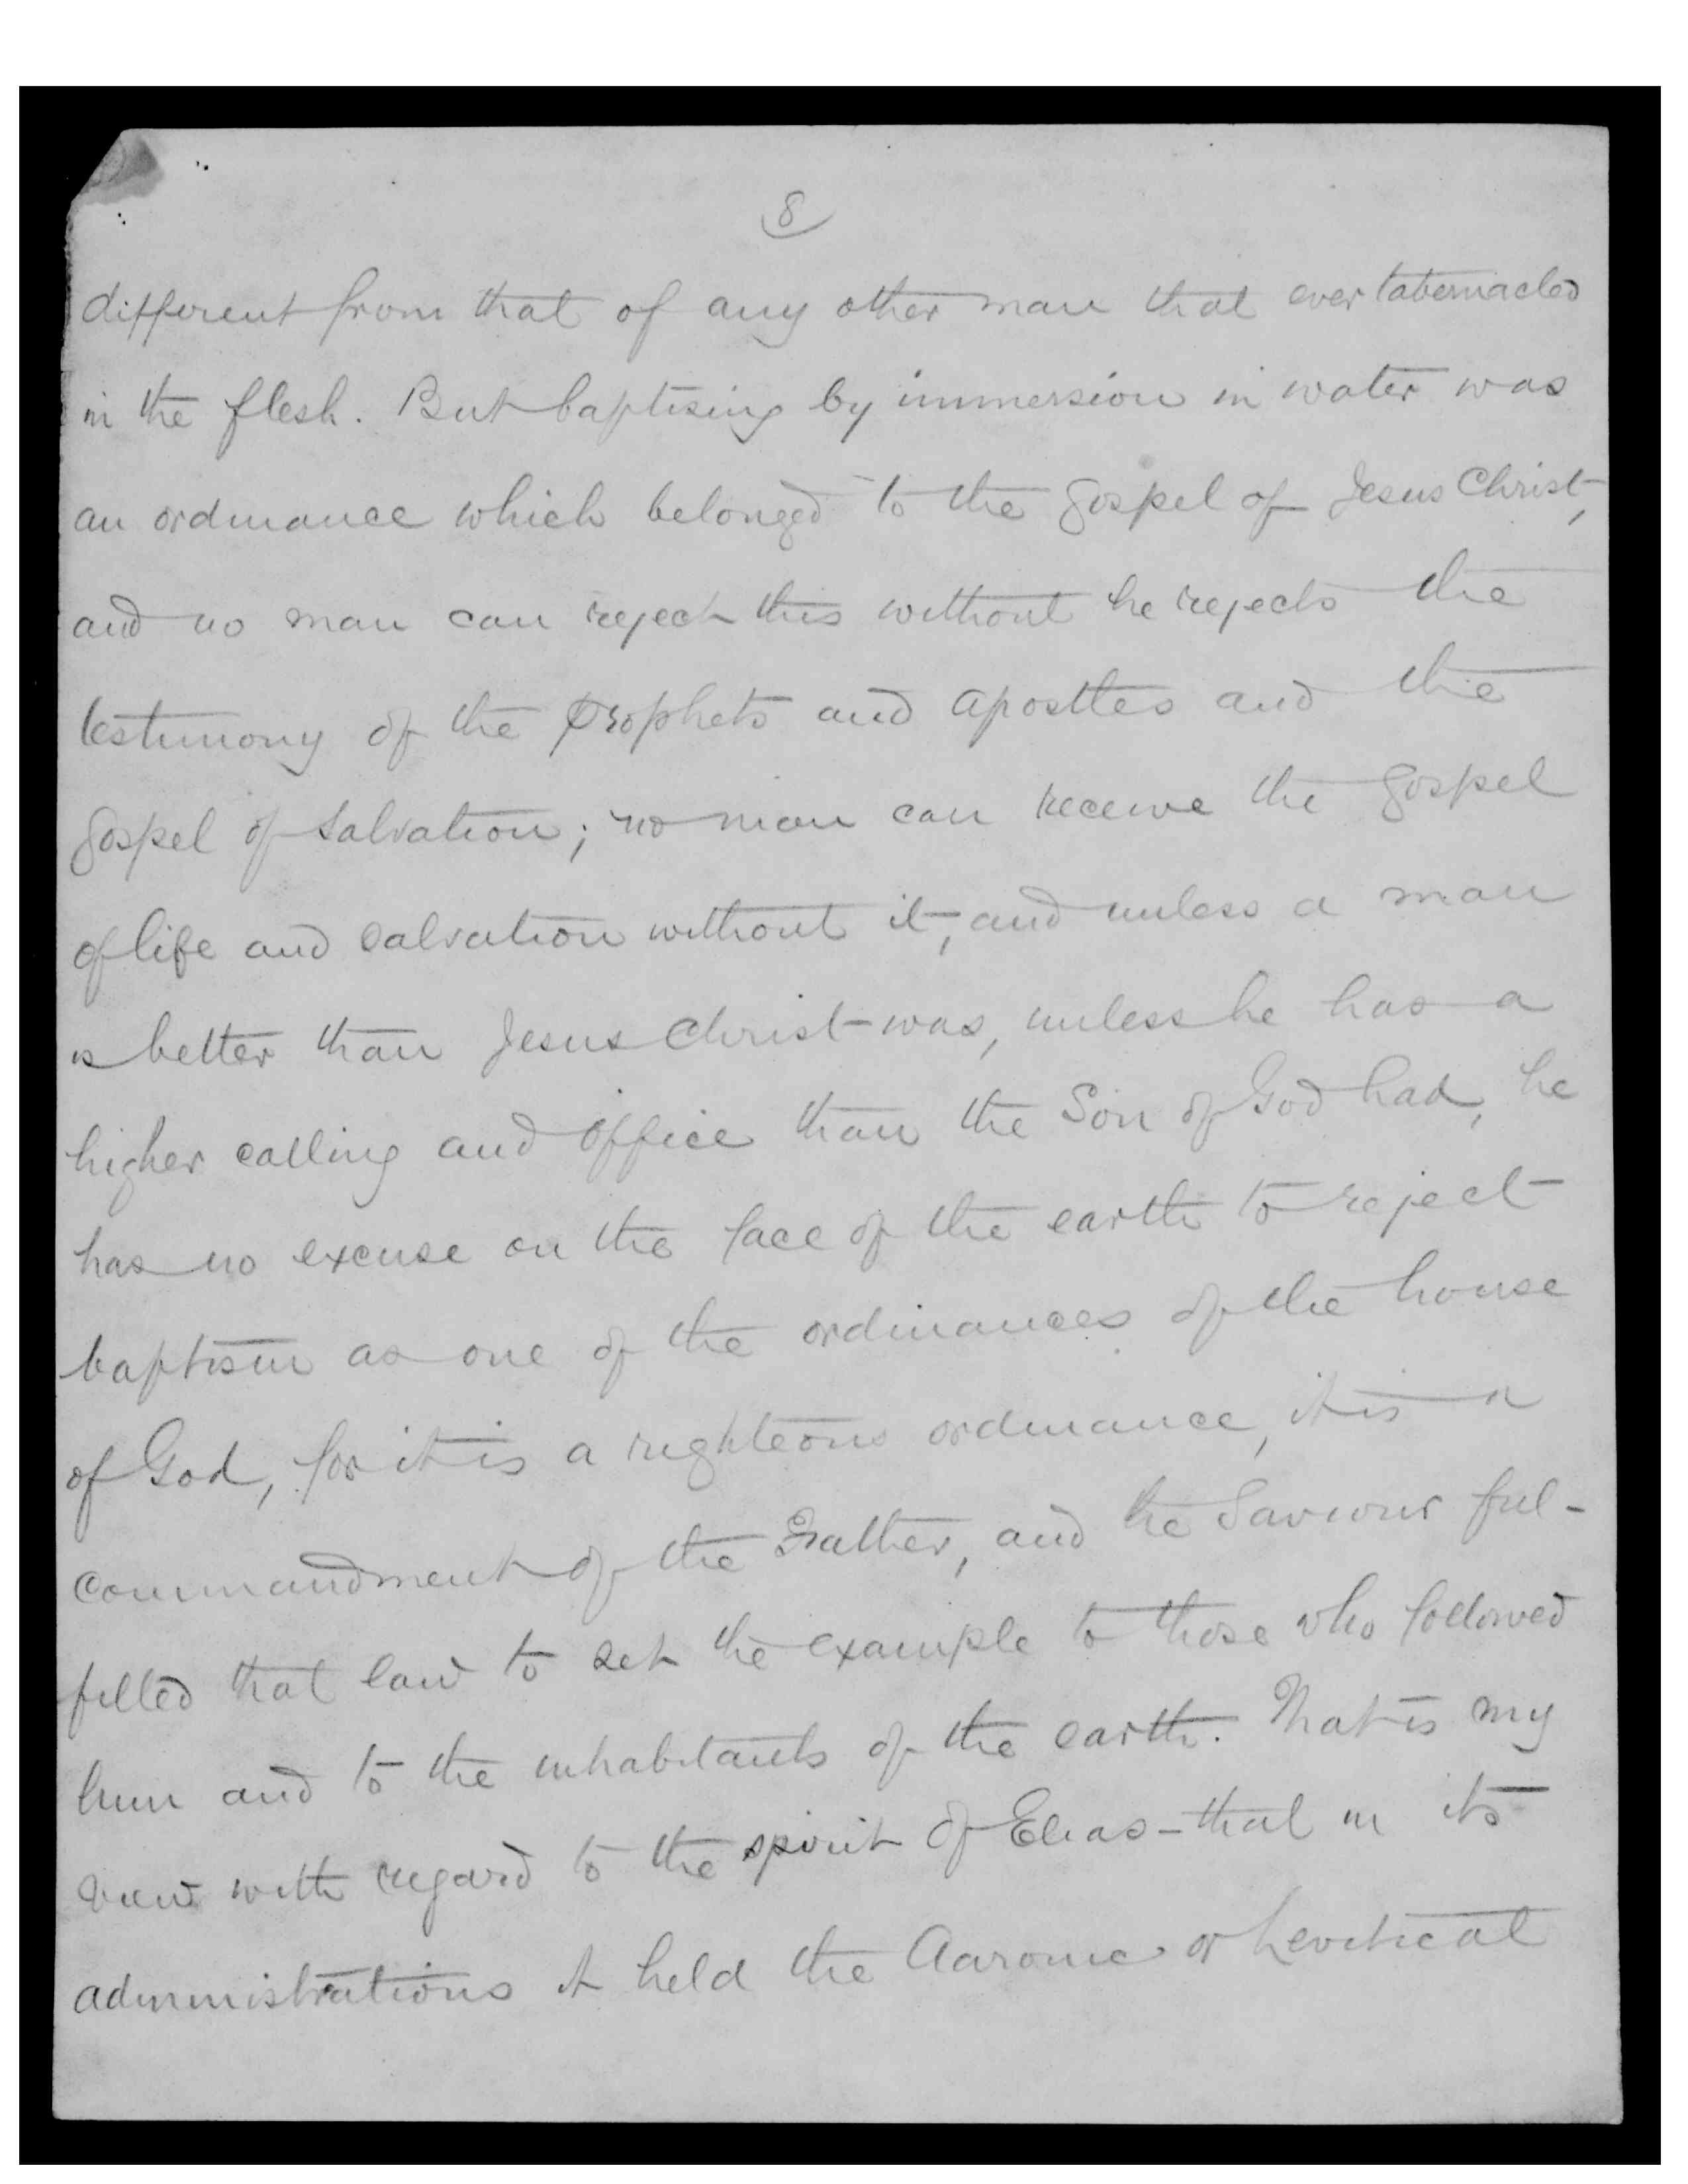 8
different from that of any other man that ever tabernacled
in the flesh. But baptising by immersion in water was
an ordinance which belonged to the gospel of Jesus Christ,
and no man can reject this without he rejects the
testimony of the prophets and apostles and the
gospel of salvation; no man can receive the gospel
of life and salvation without it, and unless a man
is better than Jesus Christ was, unless he has a
higher calling and office than the Son of God had, he
has no excuse on the face of the earth to reject
baptism as one of the ordinances of the house
of God, for it is a righteous ordinance, it is a
commandment of the Father, and the Saviour ful-
filled that law to set the example to those who followed
him and to the inhabitants of the earth. That is my
view with regard to the spirit of Elias - that in its
administrations it held the Aaronic or Levitical